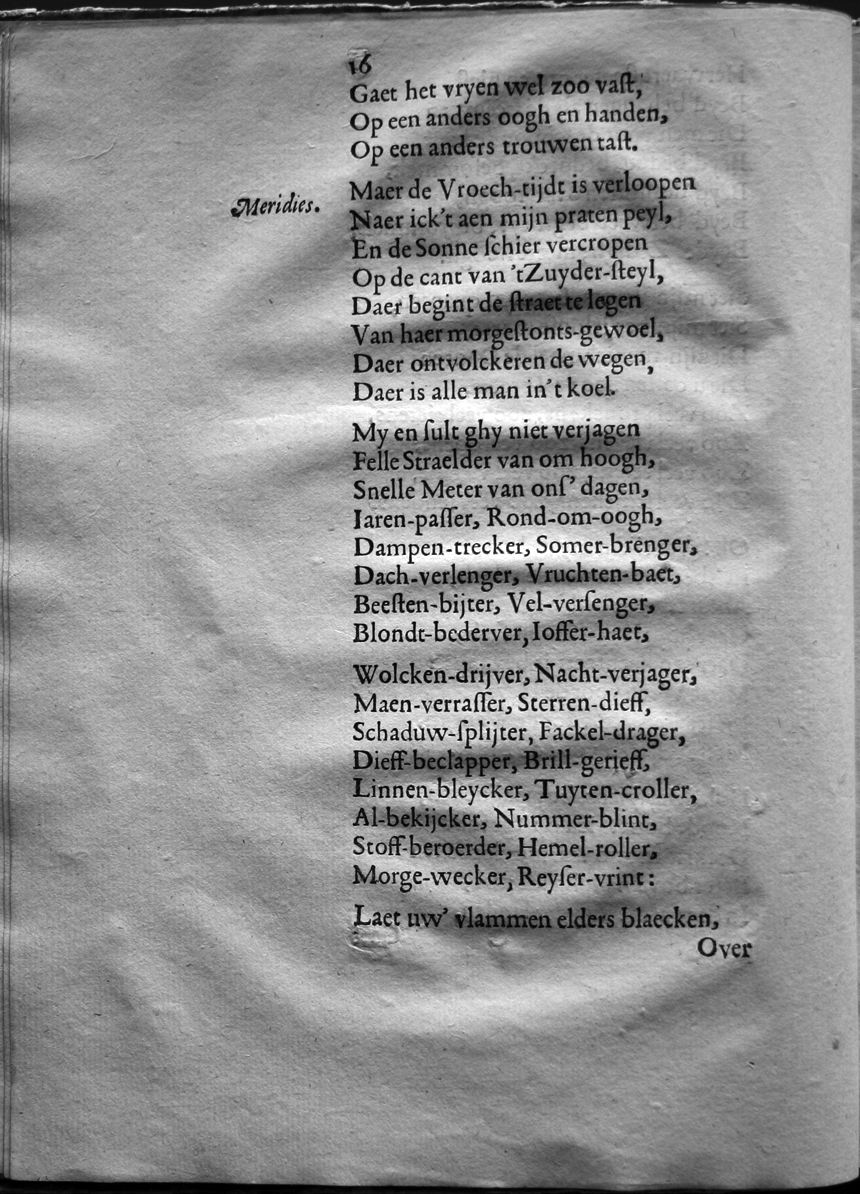 16
Gaet het vryen wel zoo vaſt,
Op een anders oogh en handen,
Op een anders trouwen taſt.
Meridies.
Maer de Vroech-tijdt is verloopen
Naer ick't aen mijn praten peyl,
En de Sonne ſchier vercropen
Op de cant van 'tZuyder-ſteyl,
Daer begint de ſtraet te legen
Van haer morgeſtonts-gewoel,
Daer ontvolckeren de wegen,
Daer is alle man in't koel.
My en ſult ghy niet verjagen
Felle Straelder van om hoogh,
Snelle Meter van onſ' dagen,
Iaren-paſſer, Rond-om-oogh,
Dampen-trecker, Somer-brenger,
Dach-verlenger, Vruchten-baet,
Beeſten-bijter, Vel-verſenger,
Blondt-bederver, Ioffer-haet,
Wolcken-drijver, Nacht-verjager,
Maen-verraſſer, Sterren-dieff,
Schaduw-ſplijter, Fackel-drager,
Dieff-beclapper, Brill-gerieff,
Linnen-bleycker, Tuyten-croller,
Al-bekijcker, Nummer-blint,
Stoff-beroerder, Hemel-roller,
Morge-wecker, Reyſer-vrint:
Laet uw' vlammen elders blaecken,
Over